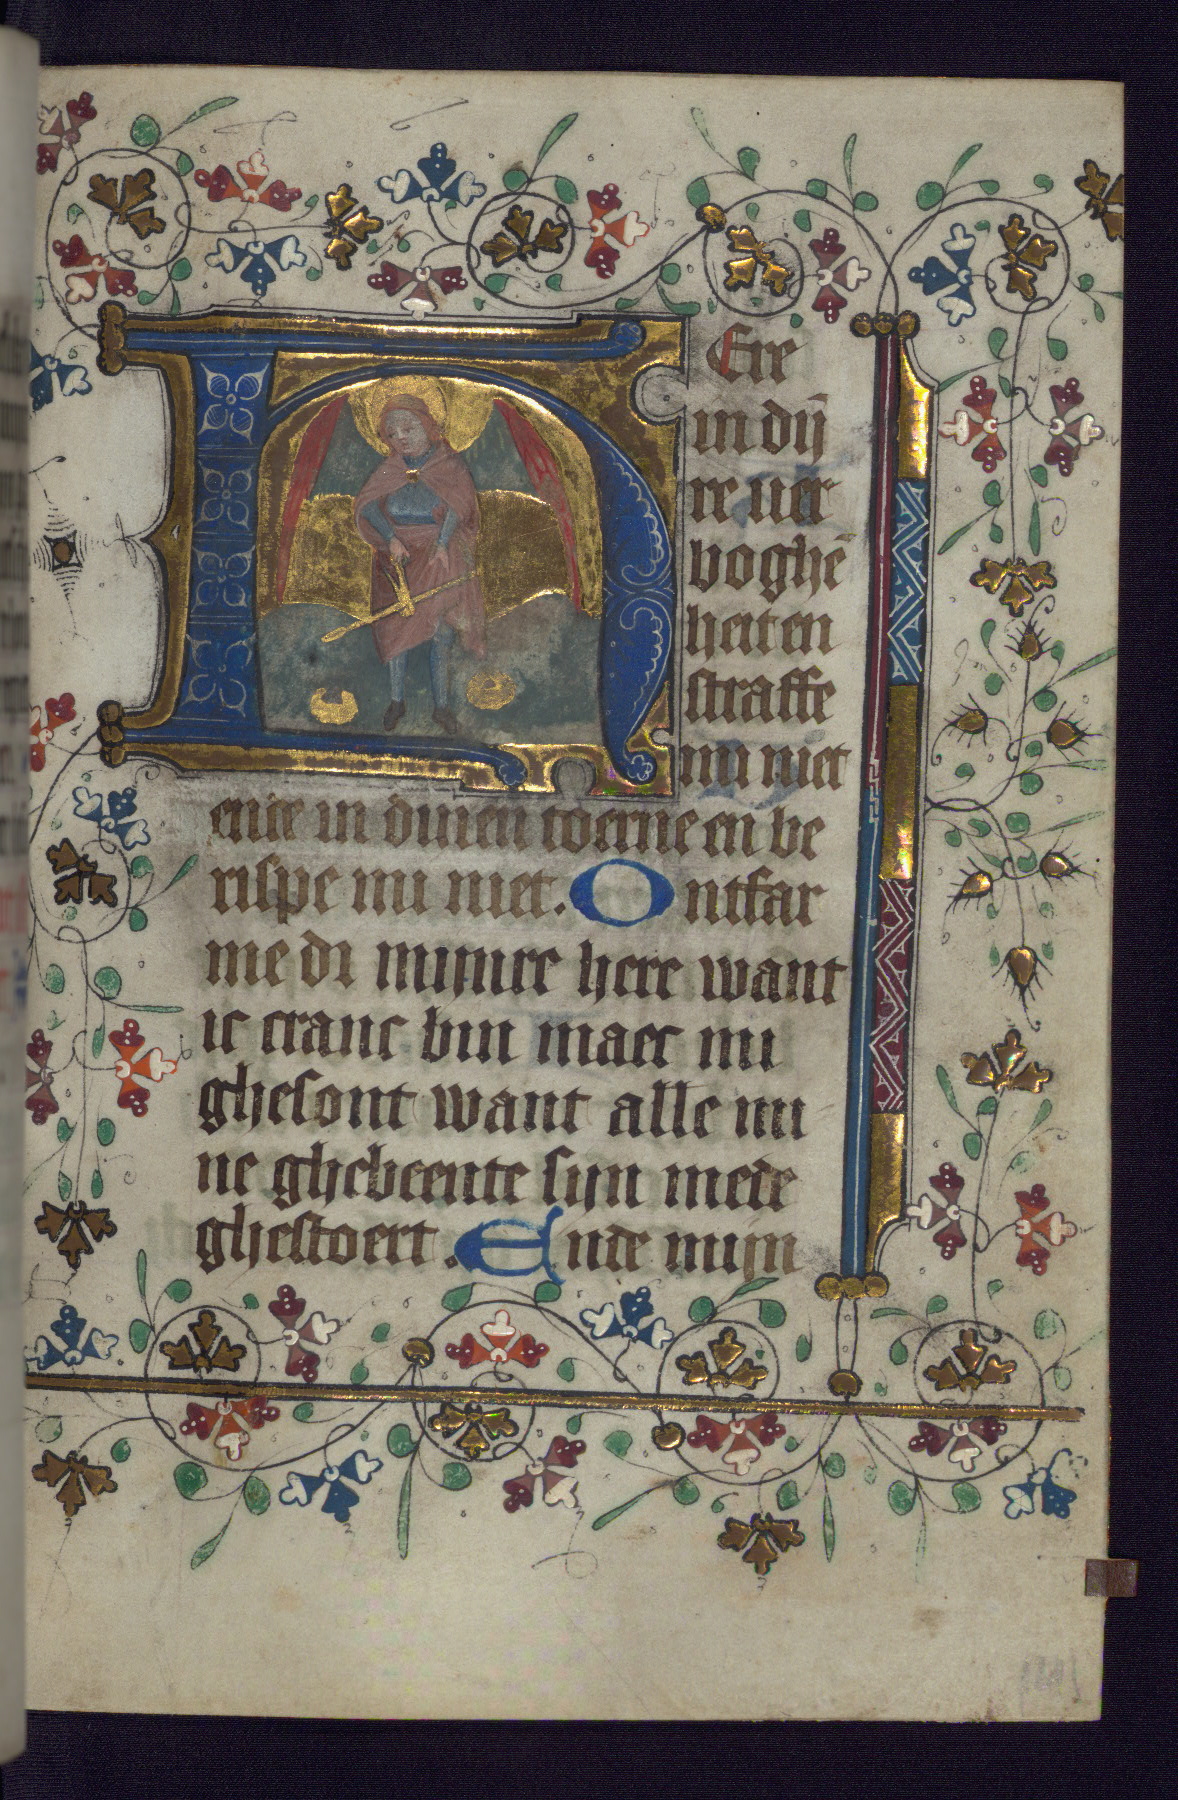 HEre
in dīj
re uer
boghē
heit en
straffe
mi niet
ende in dinen toerne en be
rispe mi niet. Ontfar
me di mijnre here want
ic cranc bin maec mi
ghesont want alle mi
ne ghebeente sijn mede
ghestoert. Ende mijn